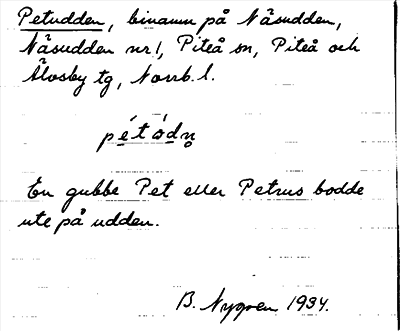 Petudden, binamn på Näsudden,
Näsudden nr 1, Piteå sn, Piteå och
Älvsby tg, Norrb. l.
pétòdn̥
En gubbe Pet eller Petrus bodde
ute på udden.
B. Nygren 1934.